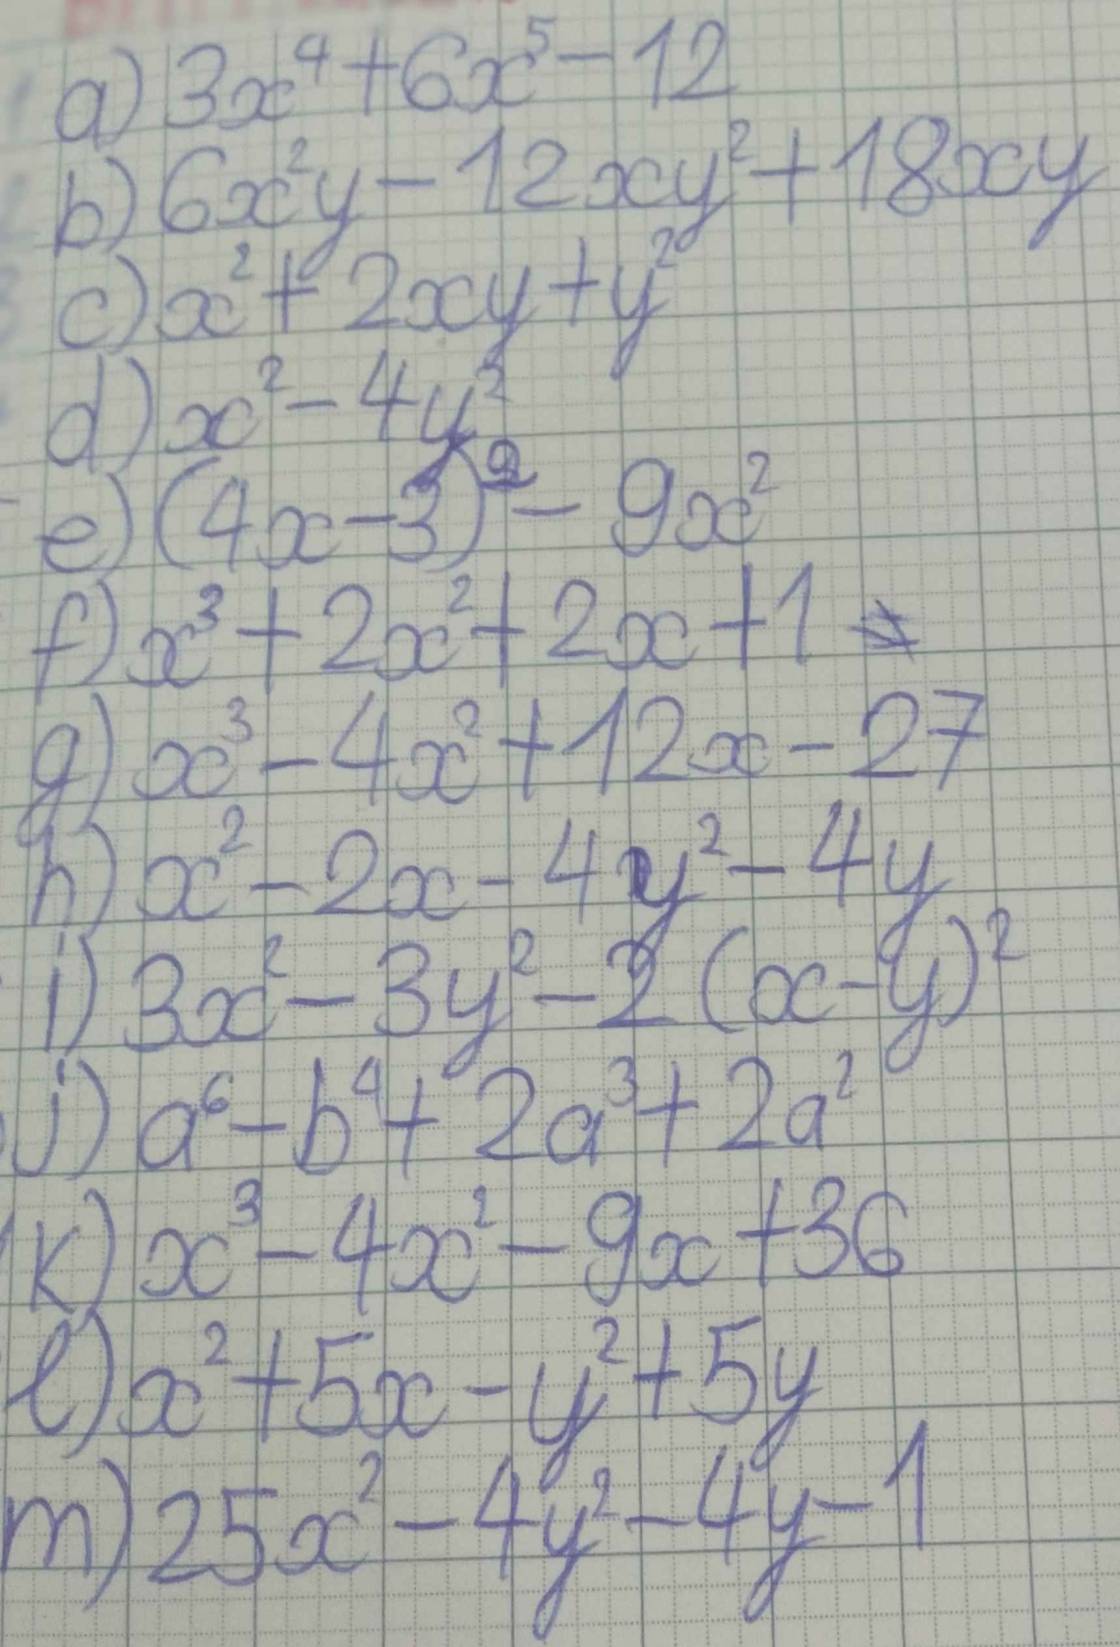 a) 3x⁴ + 6x⁵ - 12
b) 6x²y - 12xy² + 18xy
c) x² + 2xy + y²
d) x² - 4y²
e) (4x - 3)² - 9x²
f) x³ + 2x² + 2x + 1
g) x³ - 4x² + 12x - 27
h) x² - 2x - 4y² - 4y
i) 3x² - 3y² - 2(x - y)²
j) a⁶ - b⁴ + 2a³ + 2a²
k) x³ - 4x² - 9x + 36
l) x² + 5x - y² + 5y
m) 25x² - 4y² - 4y - 1